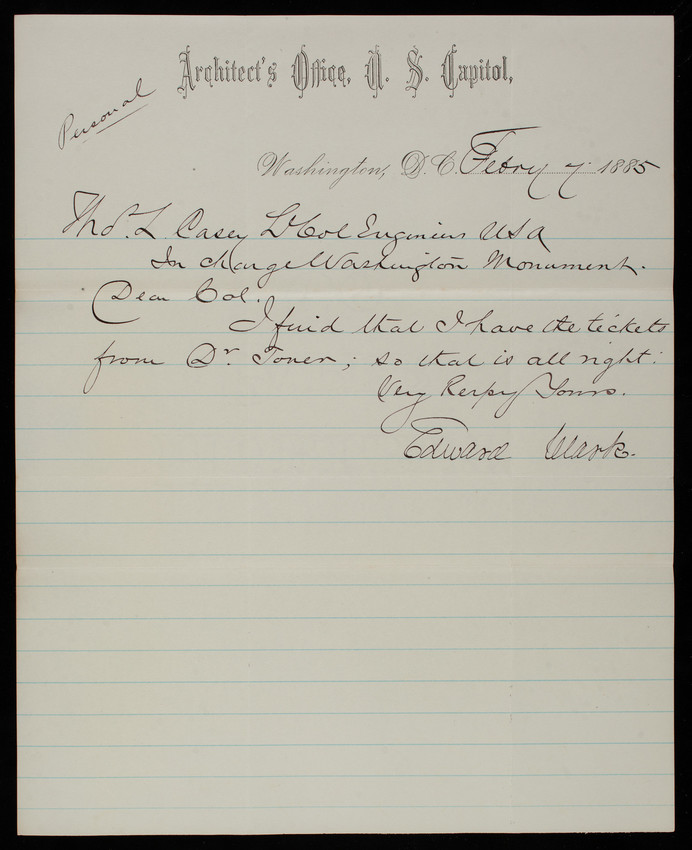 Architect's Office, U. S. Capitol,
Personal
Washington, D. C. Febry 7 1885
Thos. L Casey Lt Col Engineers USA
In charge Washington Monument.
Dear Col.
I find that I have the tickets
from Dr. Toner; so that is all right.
Very Respy Yours.
Edward Clark.